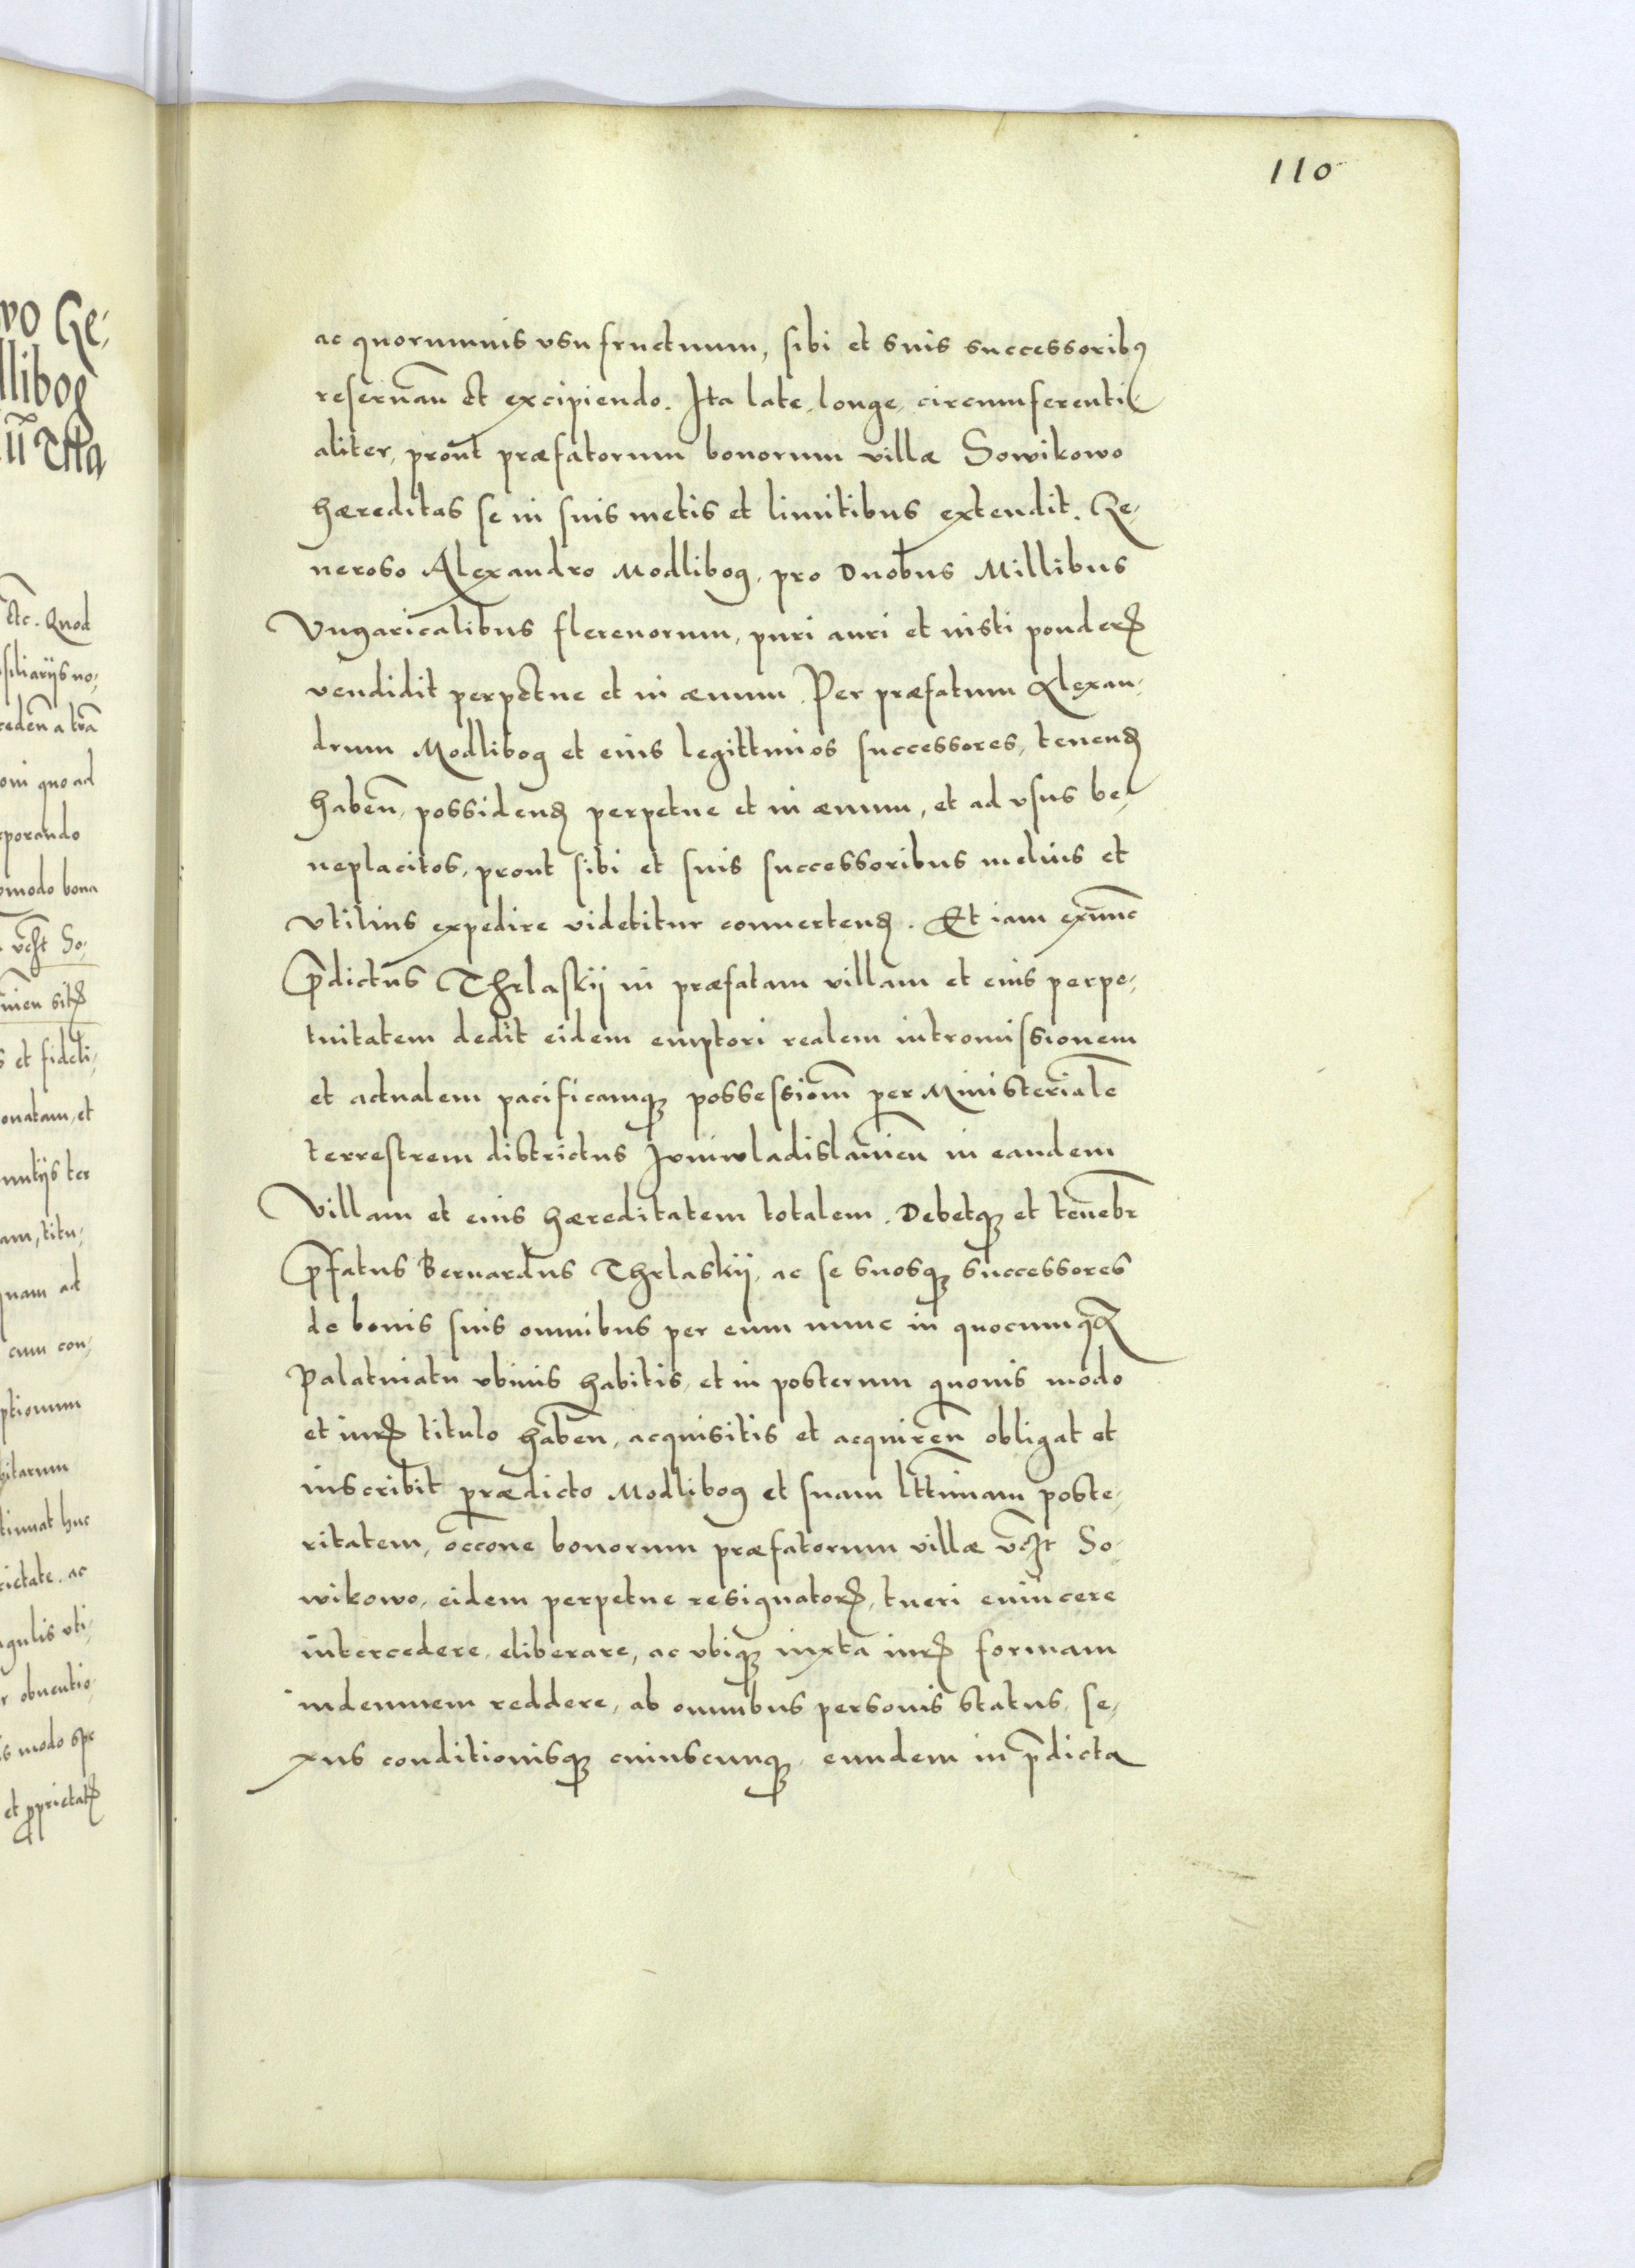 110
ac quorumuis vsufructuum, sibi et suis successorib9
reseruan̄ et excipiendo. Ita late, longe, circumferenti
aliter, prout præfatorum bonorum villæ Sowikowo
hæreditas se in suis metis et limitibus extendit. Ge,
neroso Alexandro Modlibog, pro Duobus Millibus
Vngaricalibus florenorum, puri auri et iusti ponderꝭ
vendidit perpetue et in æuum. Per præfatum Alexan,
drum Modlibog et eius legittimos successores, tenenꝺ
haben̄, possidenꝺ perpetue et in æuum, et ad vsus be,
neplacitos, prout sibi et suis successoribus melius et
vtilius expedire videbitur conuertenꝺ. Et iam exnūc
p̄dictus Thrlaskij in præfatam villam et eius perpe,
tuitatem dedit eidem emptori realem intromissionem
et actualem pacificamqꝫ possessiom̄ per Ministeriale̅
terrestrem districtus Juniwladislauien̄ in eandem
Villam et eius hæreditatem totalem. Debetqꝫ et tenebr̄
p̄fatus Bernardus Thrlaskij, ac se suosqꝫ successores
de bonis suis omnibus per eum nunc in quocumqꝫ
Palatinatu vbiuis habitis, et in posterum quouis modo
et iurꝭ titulo haben̄, acquisitis et acquiren̄ obligat et
inscribit prædicto Modlibog et suam lttimam poste,
ritatem, occōne bonorum præfatorum villæ vꝫt So,
wikowo, eidem perpetue resignatorꝭ, tueri euincere
intercedere, eliberare, ac vbiqꝫ iuxta iurꝭ formam
indemnem reddere, ab omnibus personis status, se,
xus conditionisqꝫ cuiuscunqꝫ, eundem in p̄dicta